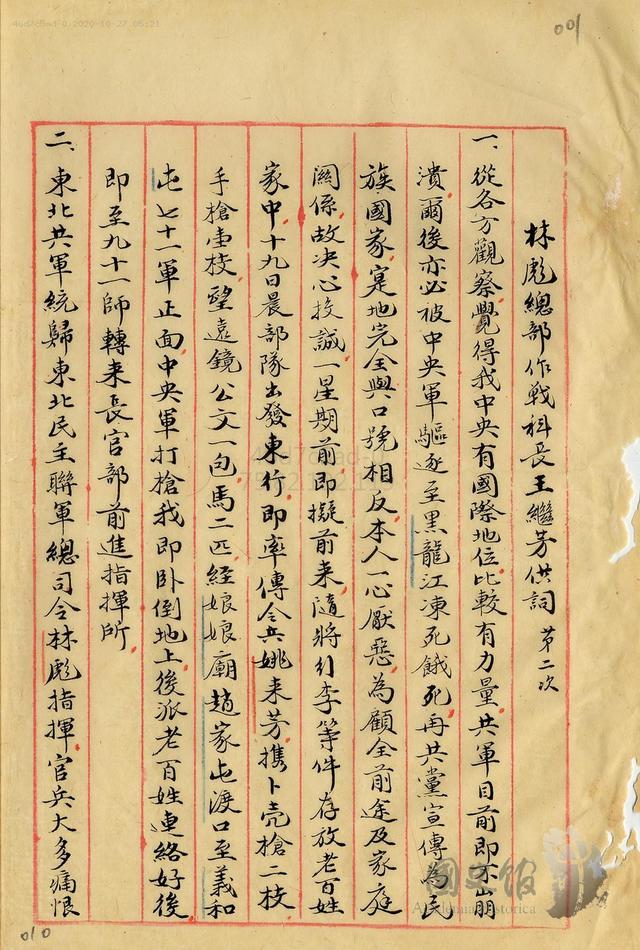 001
林彪總部作战科長王繼芳供詞 第二次
一、從各方觀察覺得我中央有國際地位比較有力量共軍目前即不崩
潰爾後亦必被中央軍驅逐至黑龍江凍死餓死再共黨宣傳為民
族國家寔地完全與口號相反本人一心厭惡為顧全前途及家庭
関係故决心投誠一星期前即擬前来隨將行李等件存放老百姓
家中十九日晨部隊出發東行即率傳令兵姚来芳携卜壳槍二枝
手槍壹枝望遠鏡公文一包馬二匹經娘娘廟趙家屯渡口至義和
屯七十一軍正面中央軍打槍我即卧倒地上後派老百姓連絡好後
即至九十一師轉来長官部前進指揮所
二、東北共軍統歸東北民主聯軍總司令林彪指揮官兵大多痛恨
國史館
Academia Historica
010